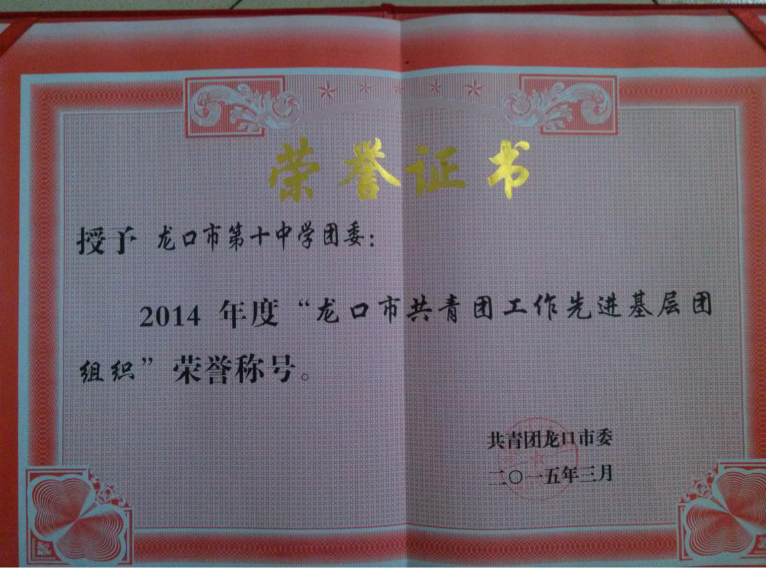 荣誉证书
授予 龙口市第十中学团委：
2014 年度“龙口市共青团工作先进基层团
组织”荣誉称号。
共青团龙口市委
二〇一五年三月